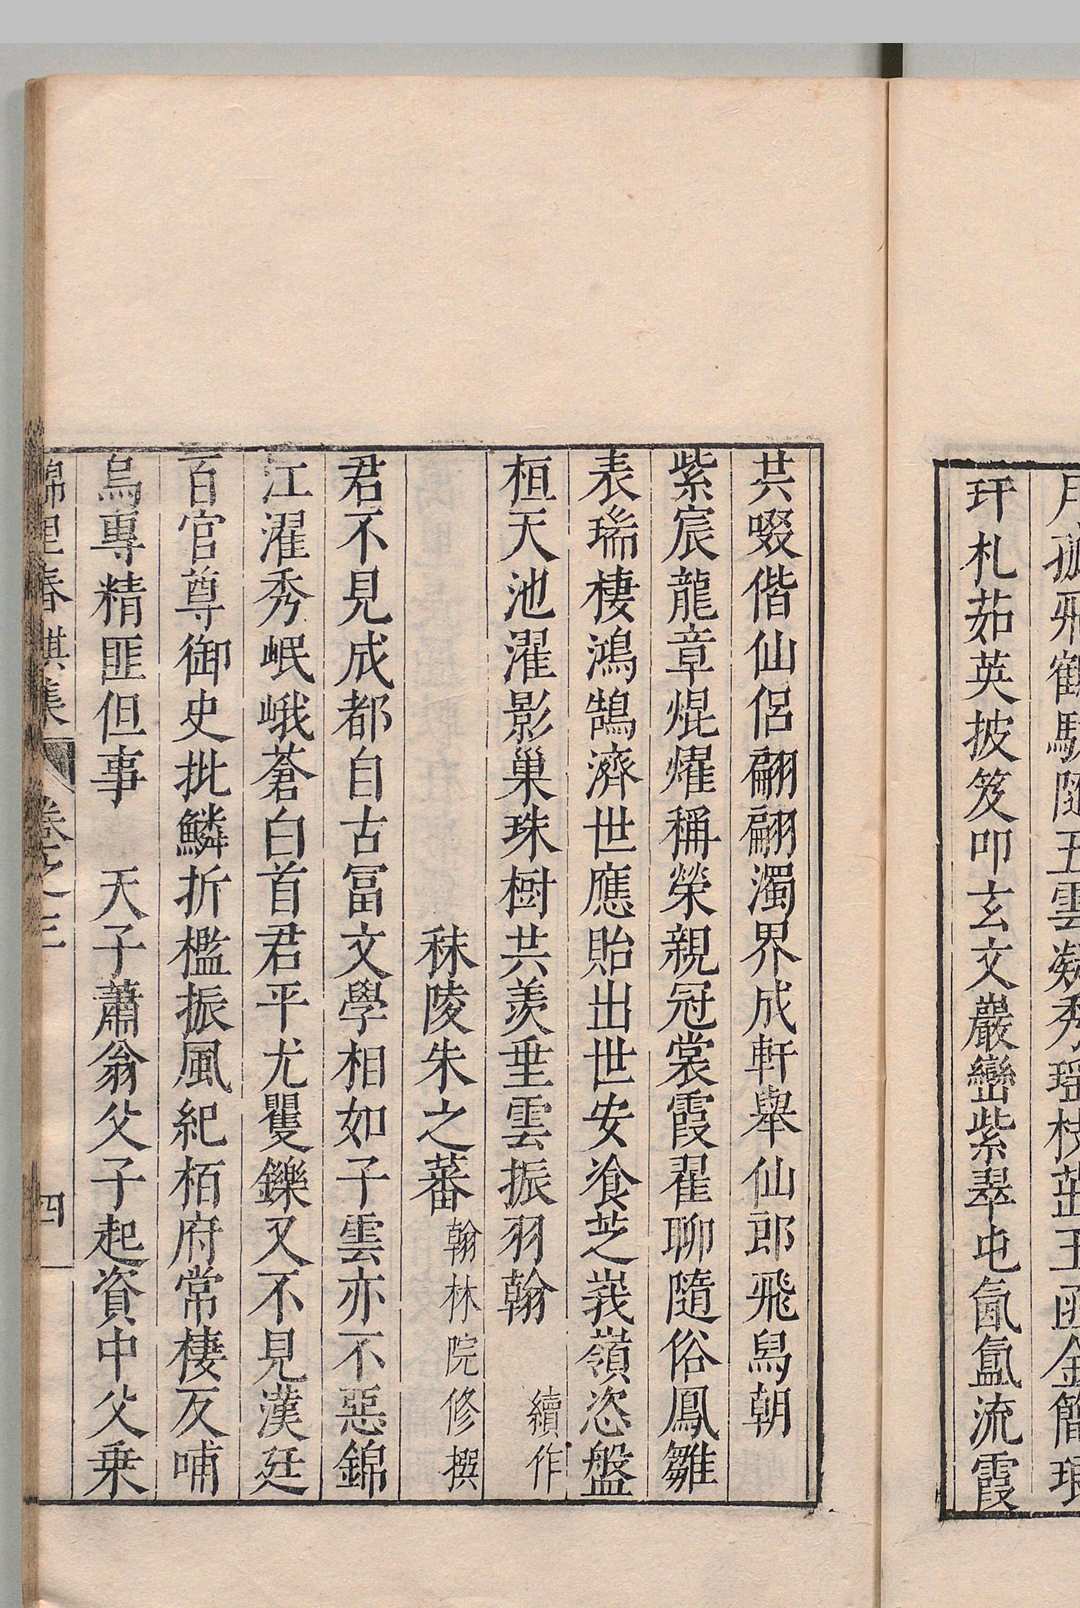 月孤飛鶴馭隨五雲凝秀瑶枝茁玉函金簡琅
玕札茹英披笈叩玄文巖巒紫翠屯氤氳流霞
共啜偕仙侶翩翩濁界成軒舉仙郎飛舄朝
紫宸龍章焜燿稱榮親冠裳霞翟聊隨俗鳳雛
表瑞棲鴻鵠濟世應貽出世安飡芝峩嶺恣盤
桓天池濯影巢珠樹共羨垂雲振羽翰 續作
秣陵朱之蕃翰林院修撰
君不見成都自古冨文學相如子雲亦不惡錦
江濯秀岷峨蒼白首君平尤矍鑠又不見漢廷
百官尊御史批鱗折檻振風紀栢府常棲反哺
烏專精匪但事 天子蕭翁父子起資中父乗
錦里春祺集 卷之三 四